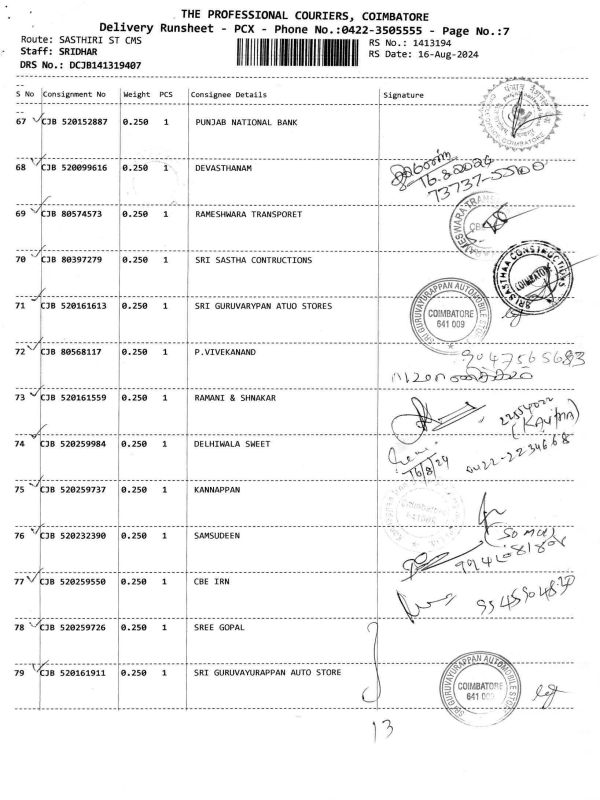 THE PROFESSIONAL COURIERS, COIMBATORE
Delivery Runsheet - PCX - Phone No.:0422-3505555 - Page No.:7
Route: SASTHIRI ST CMS
RS No.: 1413194
Staff: SRIDHAR
RS Date: 16-Aug-2024
DRS No.: DCJB141319407
S No Consignment No Weight PCS Consignee Details Signature
67 CJB 520152887 0.250 1 PUNJAB NATIONAL BANK
68 CJB 520099616 0.250 1 DEVASTHANAM
16.8.2024
73737-55100
69 CJB 80574573 0.250 1 RAMESHWARA TRANSPORET
70 CJB 80397279 0.250 1 SRI SASTHA CONTRUCTIONS
SRI SASTHAA CONSTRUCTIONS
COIMBATORE
71 CJB 520161613 0.250 1 SRI GURUVARYPAN ATUO STORES
SRI GURUVAYURAPPAN AUTOMOBILE STORES
COIMBATORE
641 009
72 CJB 80568117 0.250 1 P.VIVEKANAND
9047565683
73 CJB 520161559 0.250 1 RAMANI & SHNAKAR
74 CJB 520259984 0.250 1 DELHIWALA SWEET
16/8/24
0422-2234668
75 CJB 520259737 0.250 1 KANNAPPAN
76 CJB 520232390 0.250 1 SAMSUDEEN
77 CJB 520259550 0.250 1 CBE IRN
78 CJB 520259726 0.250 1 SREE GOPAL
79 CJB 520161911 0.250 1 SRI GURUVAYURAPPAN AUTO STORE
SRI GURUVAYURAPPAN AUTOMOBILE STORES
COIMBATORE
641 009
13